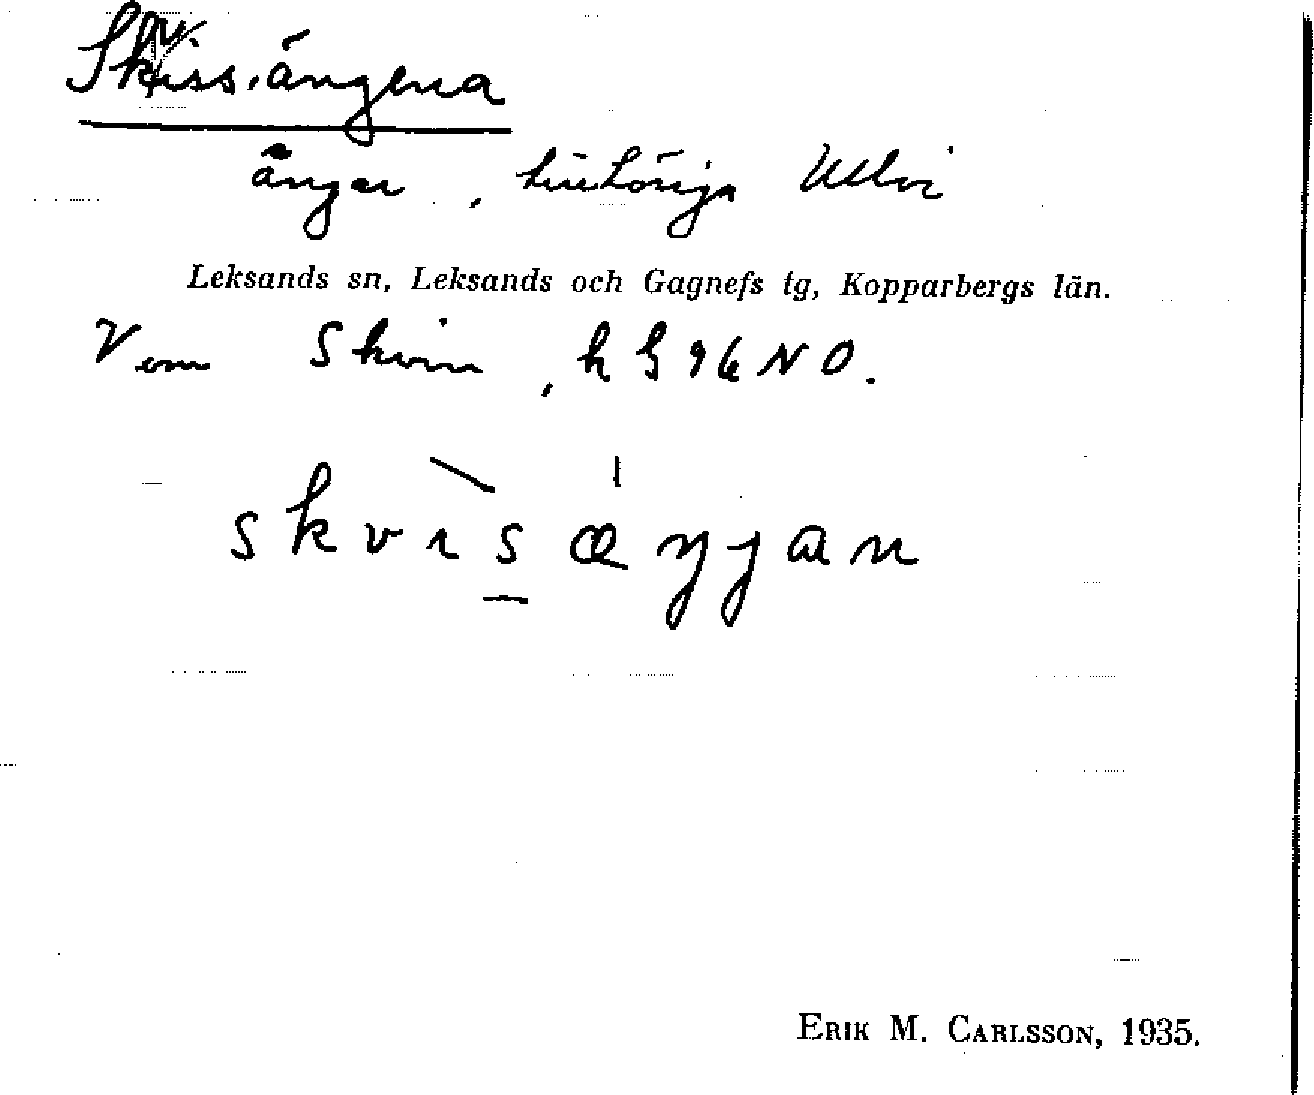 Skvissängena
ängar, tillhöriga Ullvi
Leksands sn, Leksands och Gagnefs tg, Kopparbergs län.
V om Skvin, h G 96 NO.
skvısæŋjan
ERIK M. CARLSSON, 1935.